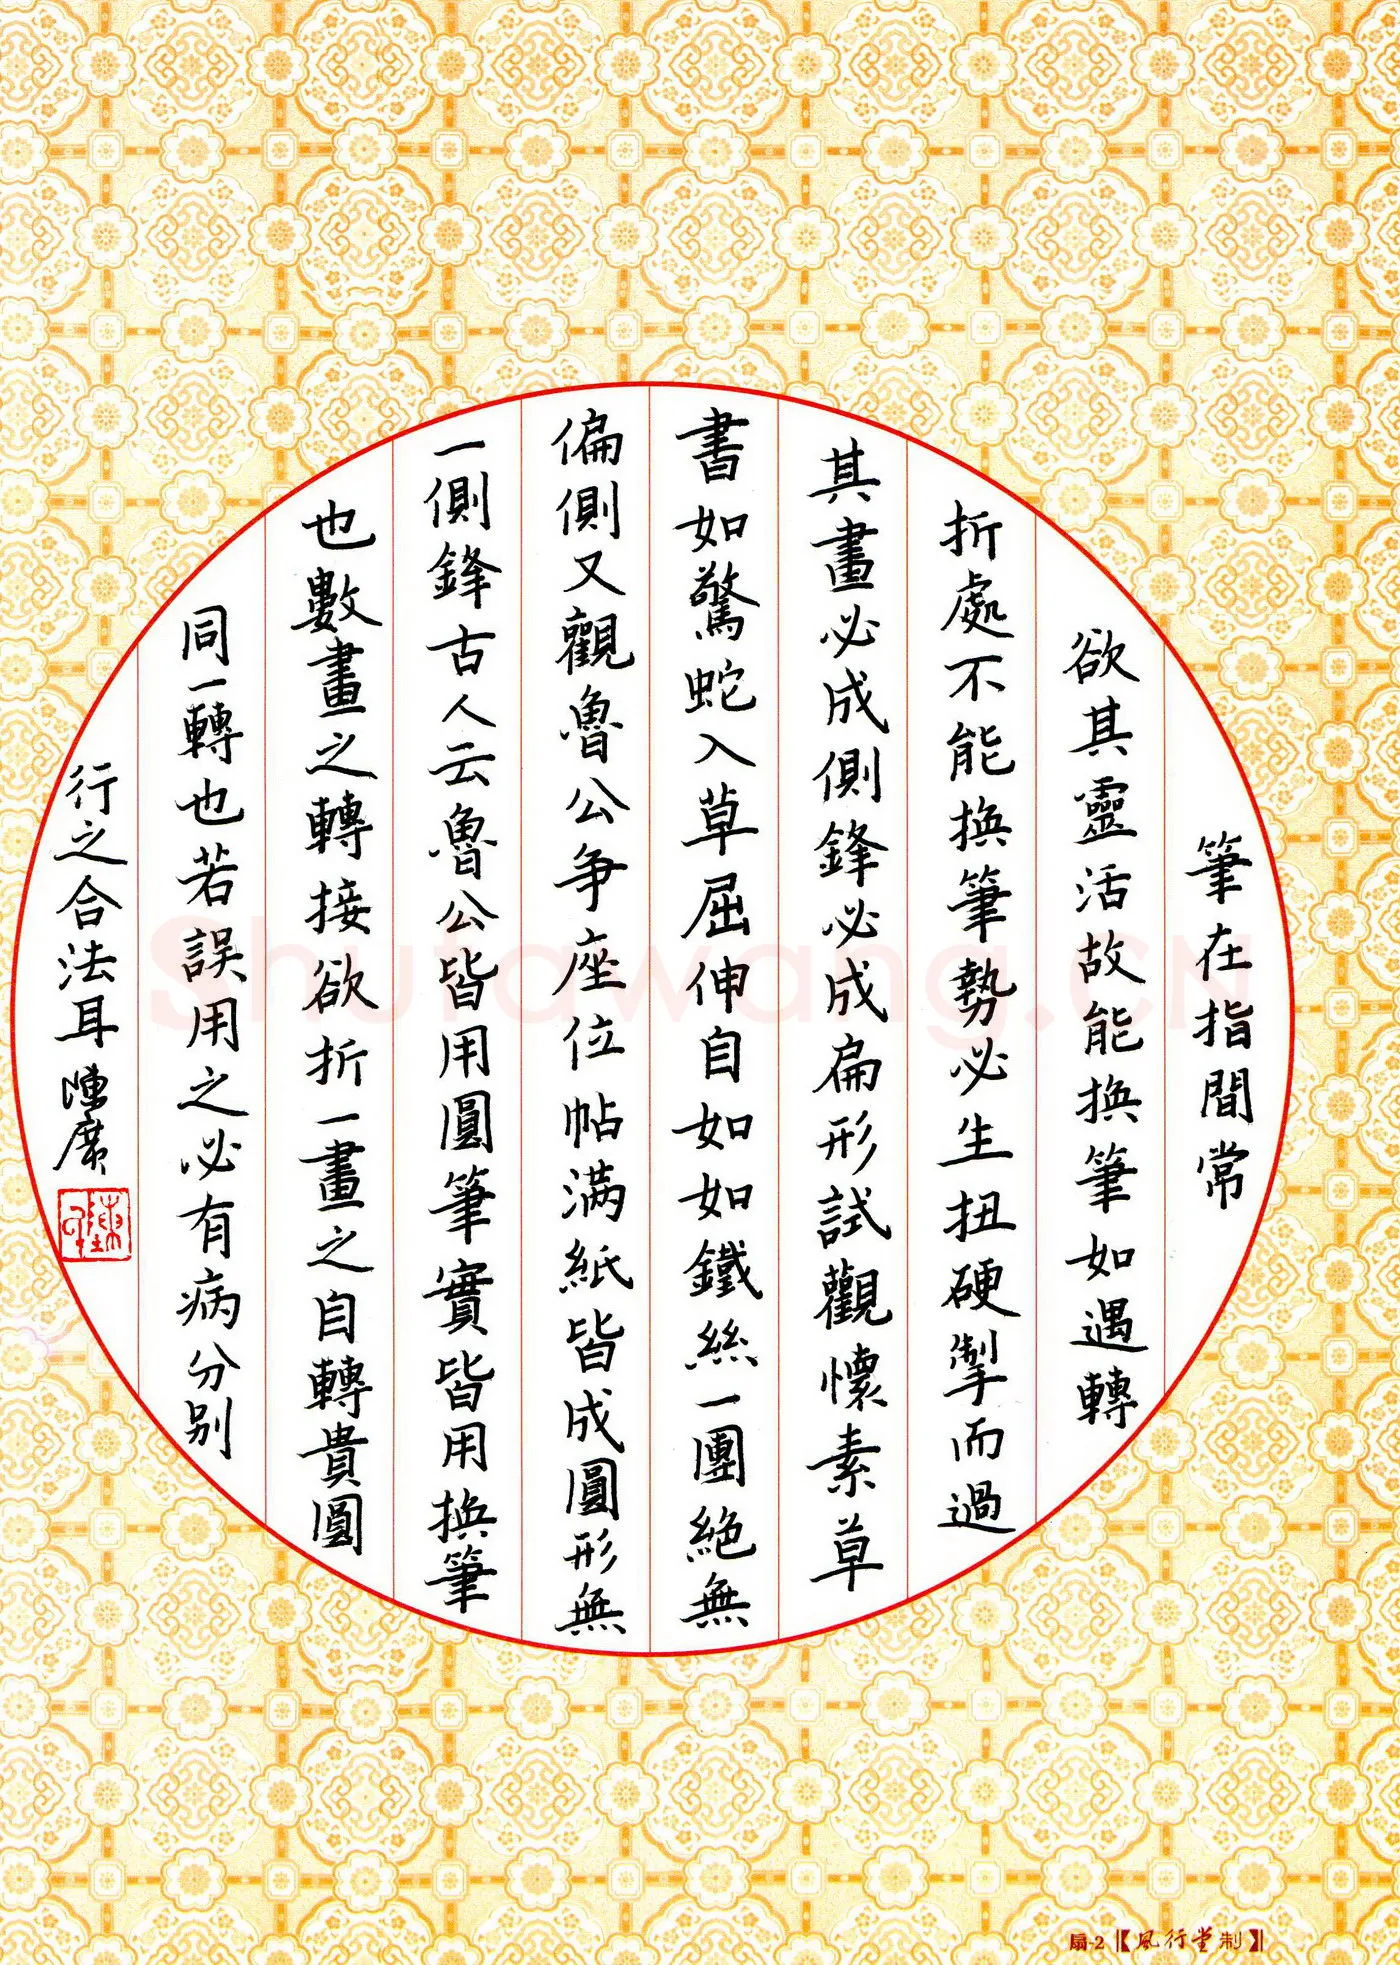 筆在指間常
欲其靈活故能換筆如遇轉
折處不能換筆勢必生扭硬掣而過
其畫必成側鋒必成扁形試觀懷素草
書如驚蛇入草屈伸自如如鐵絲一團絕無
偏側又觀魯公爭座位帖滿紙皆成圓形無
一側鋒古人云魯公皆用圓筆實皆用換筆
也數畫之轉接欲折一畫之自轉貴圓
同一轉也若誤用之必有病分别
行之合法耳 陳廣
Shufawang.CN
扇-2【風行堂制】